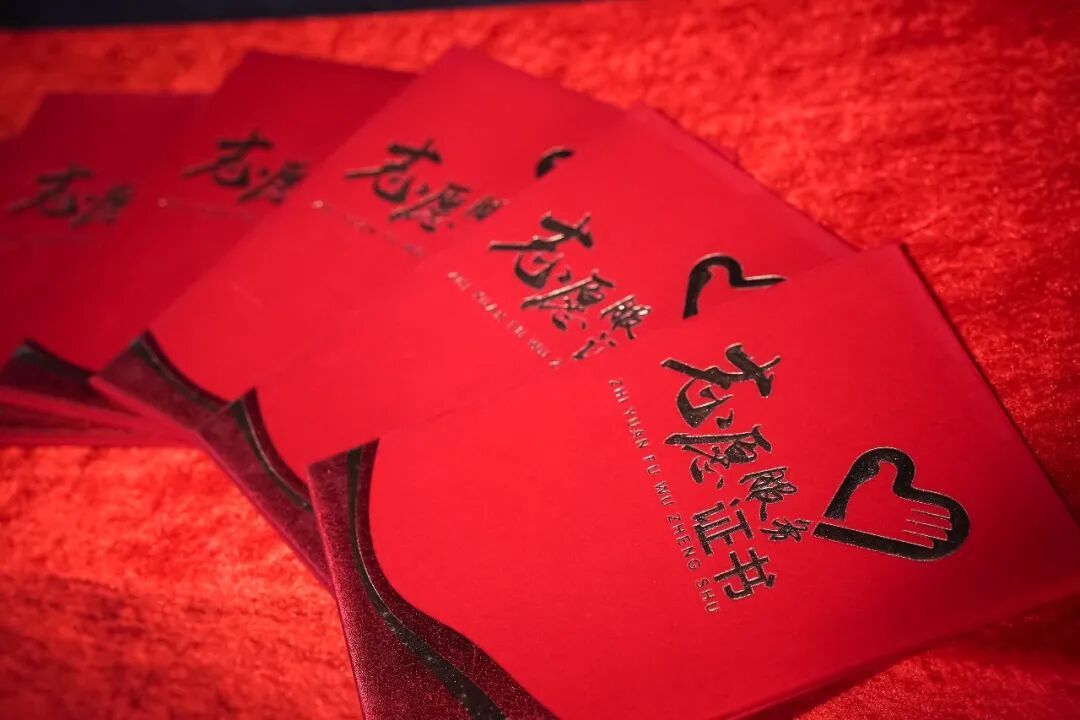 志愿
志愿
志愿服
志愿服
证
志愿服务
证书
ZHI YUAN FU WU ZHENG SHU